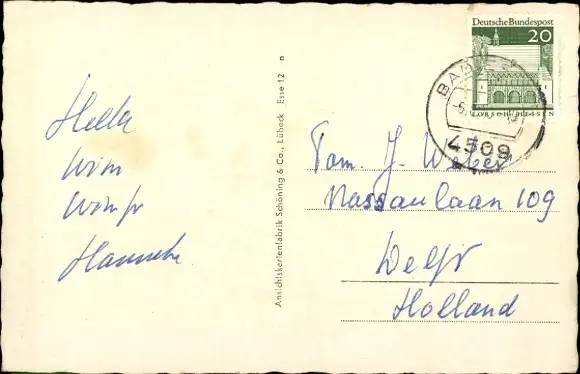 Hella
Wim
Wimpr
Hanneke
Ansichtskartenfabrik Schöning & Co., Lübeck Esse 12 n
Deutsche Bundespost
20
LORSCH/HESSEN
BAD
4509
Fam. J. Weber
Nassaulaan 109
Delft
Holland